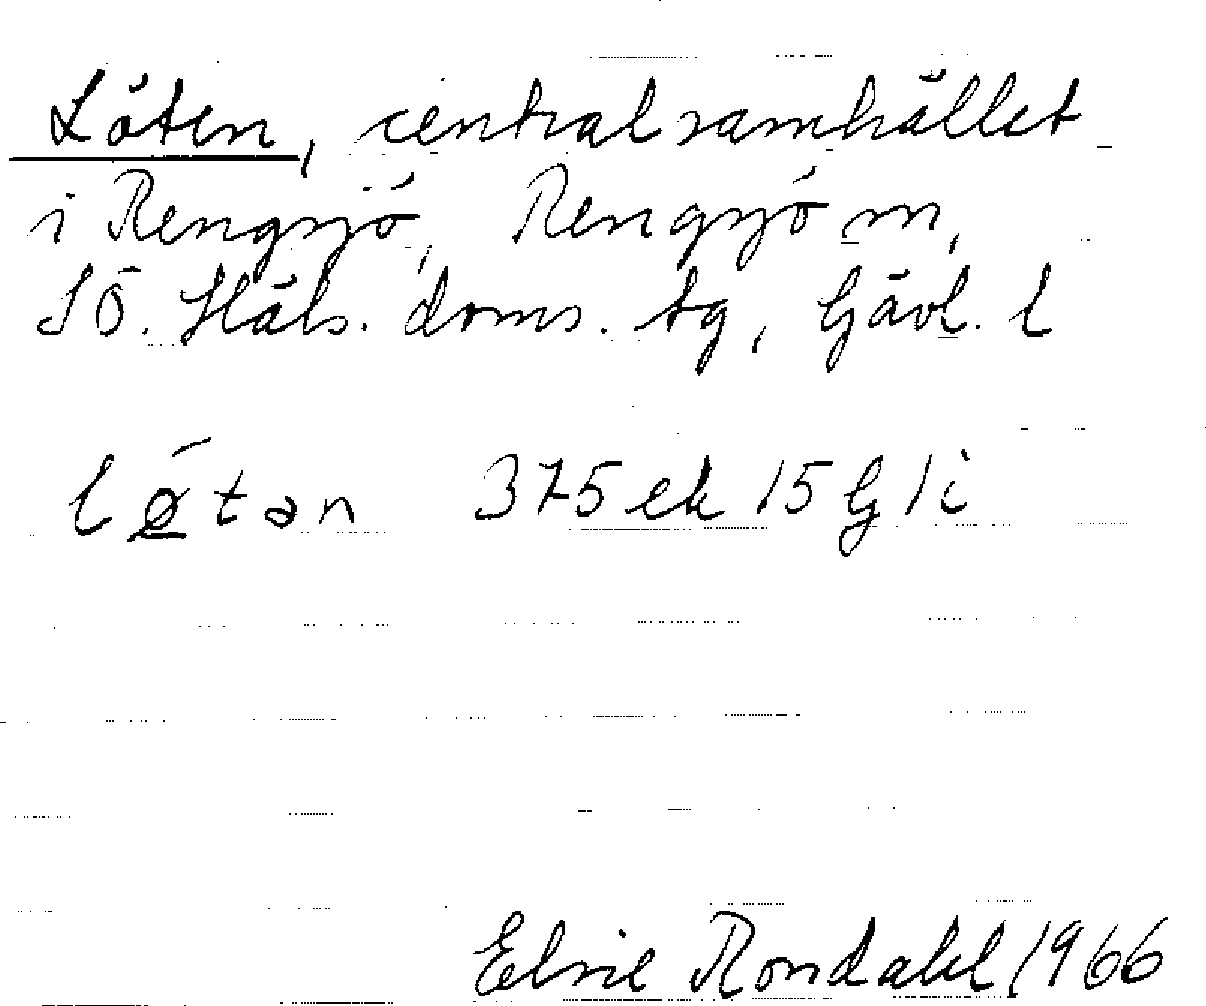 Löten, centralsamhället
i Rengsjö, Rengsjö sn,
SÖ. Häls. doms. tg, Gävl. l
lǿ̠tən 375 ek 15 G 1 i
Elsie Rondahl 1966